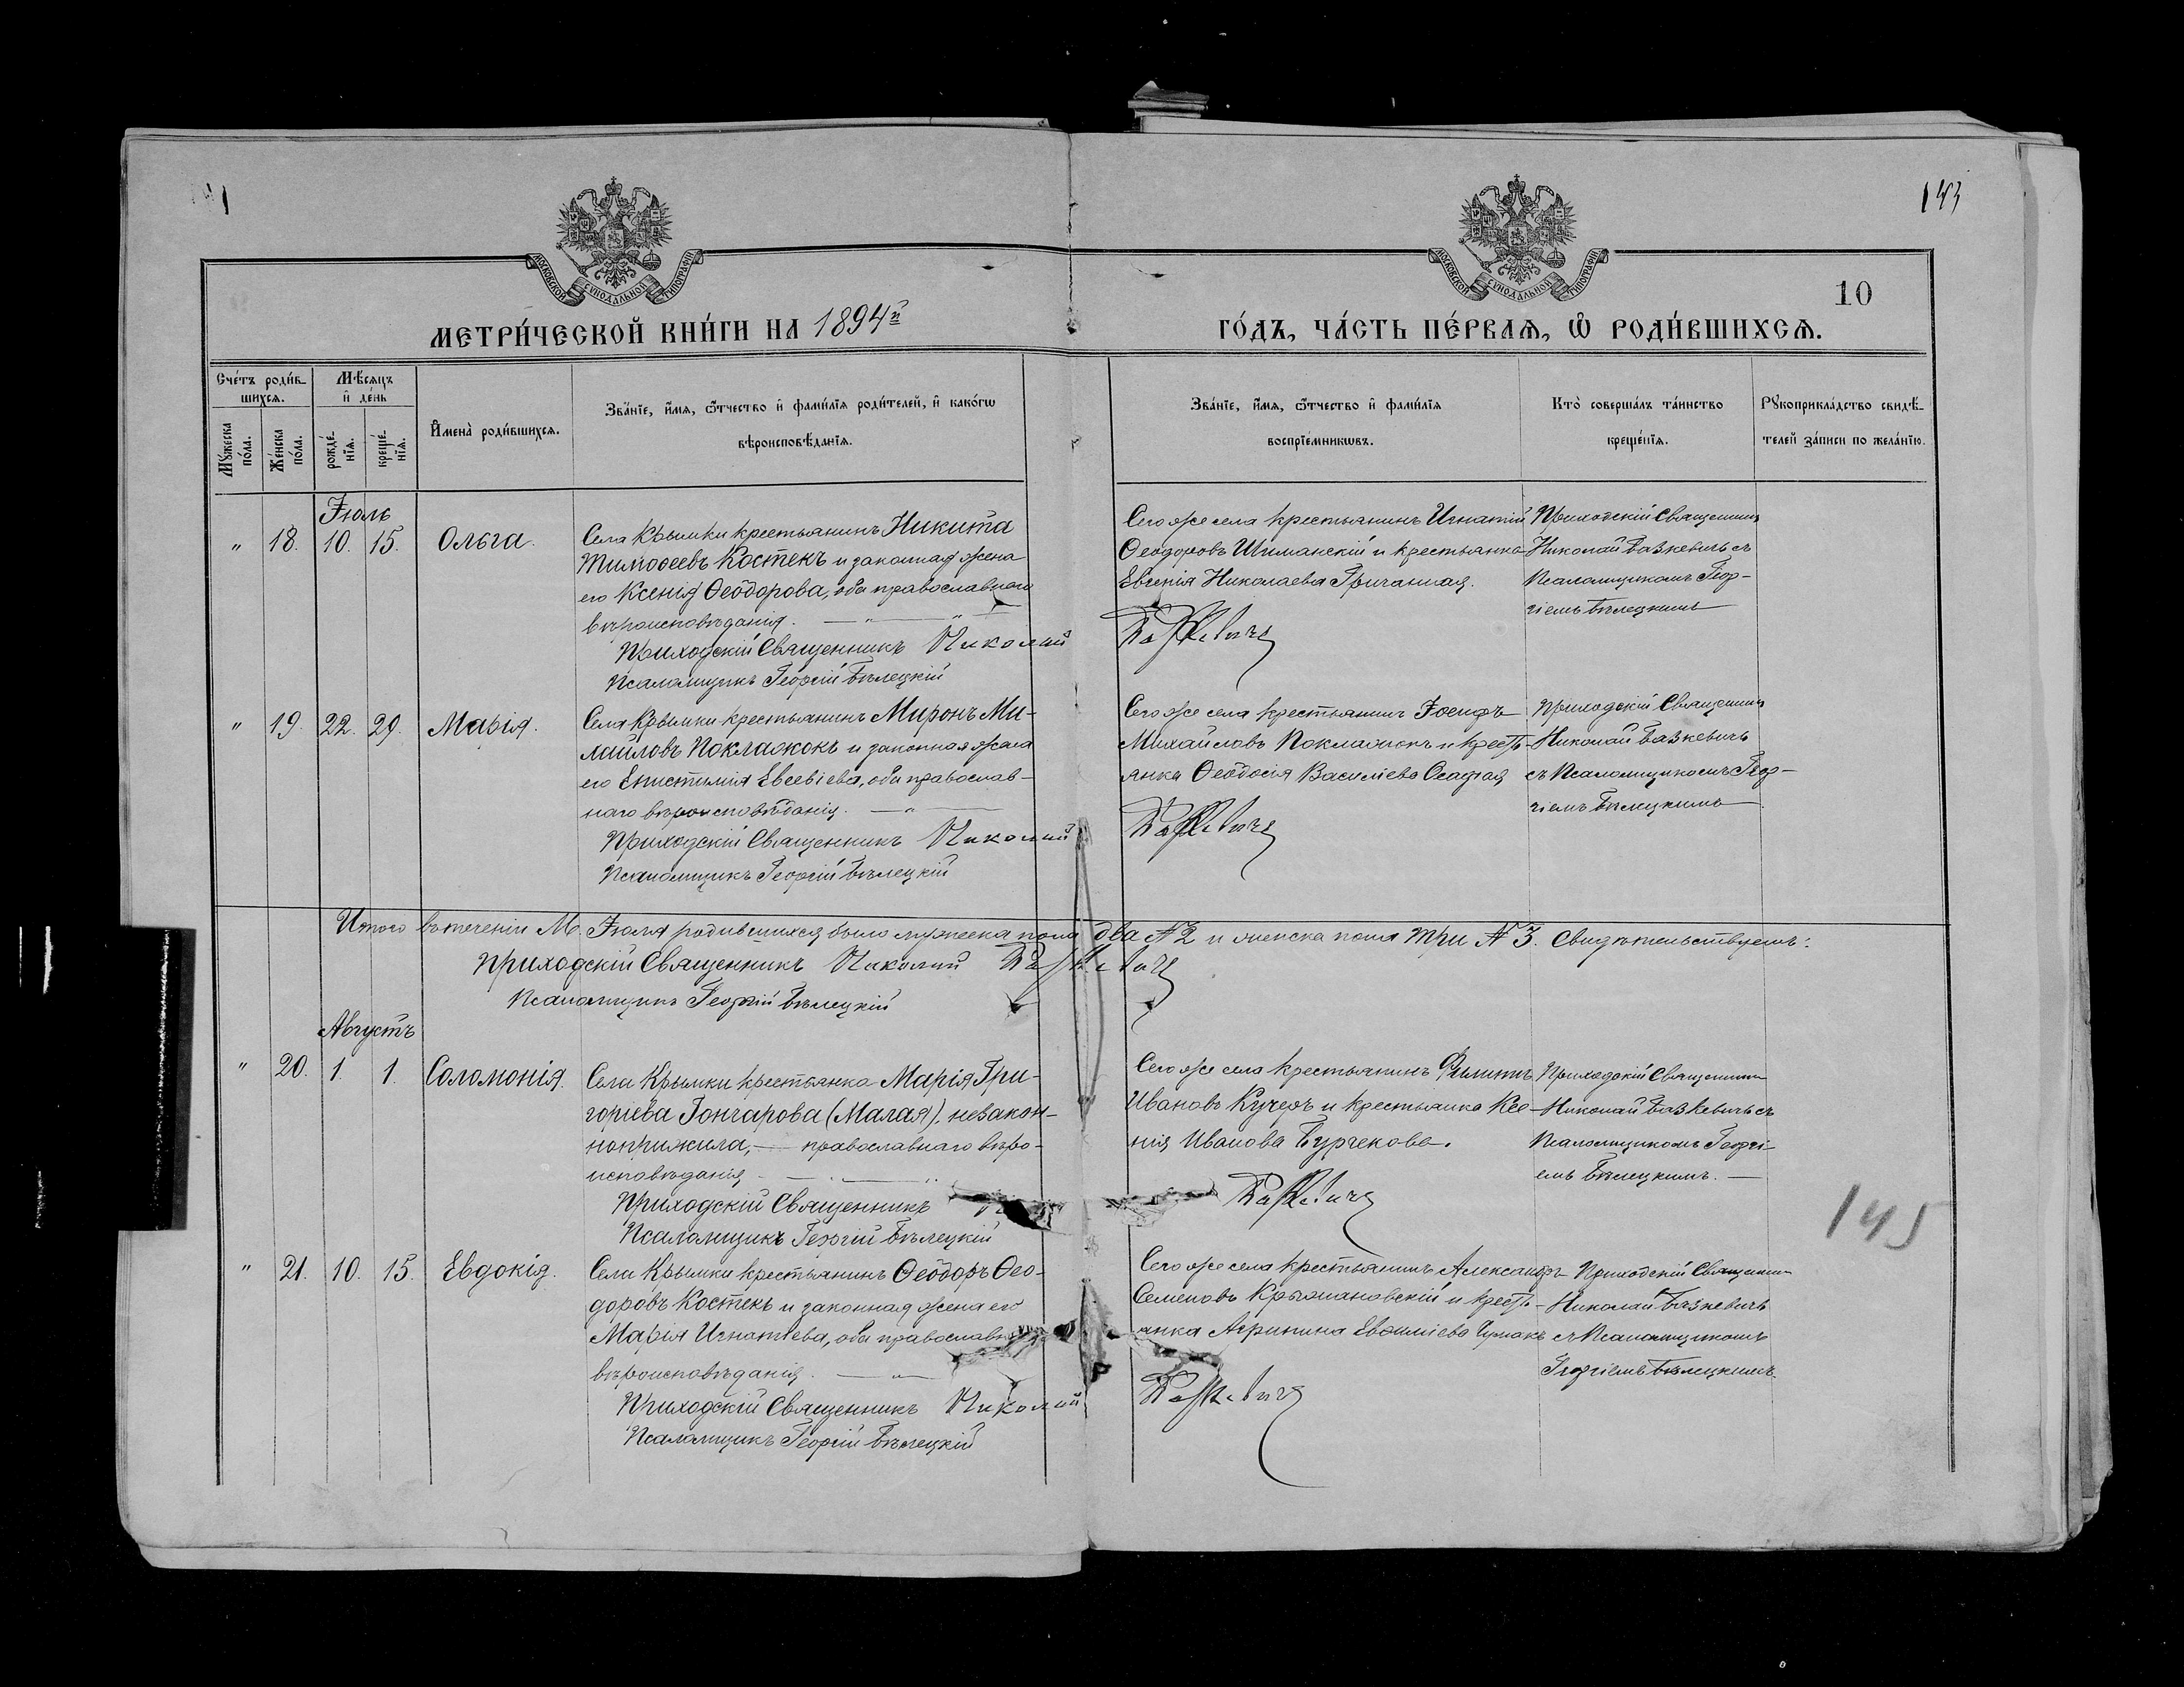 143
МОСКОВСКОЙ СѴНОДАЛЬНОЙ ТИПОГРАФІИ
МОСКОВСКОЙ СѴНОДАЛЬНОЙ ТИПОГРАФІИ
10
МЕТРИ́ЧЕСКОЙ КНИ́ГИ НА 1894й
ГО́ДЪ, ЧА́СТЬ ПЕ́РВАѦ, Ѽ РОДИ́ВШИХСѦ.
Сче́тъ роди́в-
шихсѧ.
Мꙋжеска по́ла.
Же́нска по́ла.
Мѣ́сѧцъ
и҆ де́нь
рожде́-
нїѧ.
креще́-
нїѧ.
И҆мена̀ роди́вшихсѧ.
Зва́нїе, и҆́мѧ, ѻ҆́тчество и҆ фами́лїѧ роди́телей, и҆ како́гѡ
вѣроисповѣ́данїѧ.
Зва́нїе, и҆́мѧ, ѻ҆́тчество и҆ фами́лїѧ
воспрїе́мникѡвъ.
Кто̀ соверша́лъ та́инство
креще́нїѧ.
Рꙋкоприкла́дство свидѣ́-
телей за́писи по жела́нїю.
Іюль
" 18. 10. 15. Ольга.
Села Крымки крестьянинъ Никита
Тимоѳеевъ Костекъ и законная жена
его Ксенія Ѳеодорова, оба православнаго
вѣроисповѣданія.
Приходскій Священникъ Николай Базкевичъ
Псаломщикъ Георгій Бѣлецкій
Сего же села крестьянинъ Игнатій
Ѳеодоровъ Шиманскій и крестьянка
Евгенія Николаева
Приходскій Священникъ
Николай Базкевичъ съ
Псаломщикомъ Геор-
гіемъ Бѣлецкимъ
" 19. 22. 29. Марія.
Села Крымки крестьянинъ Миронъ Ми-
хайловъ Поклажокъ и законная жена
его Епистимія Евсевіева, оба православ-
наго вѣроисповѣданія.
Приходскій Священникъ Николай Базкевичъ
Псаломщикъ Георгій Бѣлецкій
Сего же села крестьянинъ Іосифъ
Михайловъ Поклажокъ и кресть-
янка Ѳеодосія Василіева
Приходскій Священникъ
Николай Базкевичъ
съ Псаломщикомъ Геор-
гіемъ Бѣлецкимъ.
Итого въ теченіи М. Іюля родившихся было мужеска пола два № 2 и женска пола три № 3. Свидѣтельствуемъ:
Приходскій Священникъ Николай Базкевичъ
Псаломщикъ Георгій Бѣлецкій
Августъ
" 20. 1. 1. Соломонія.
Села Крымки крестьянка Марія Гри-
горіева Гончарова (Малая), незакон-
ноприжила, — православнаго вѣро-
исповѣданія
Приходскій Священникъ Базкевичъ
Псаломщикъ Георгій Бѣлецкій
Сего же села крестьянинъ Филиппъ
Ивановъ Кучеръ и крестьянка Ксе-
нія Иванова Бурчекова.
Приходскій Священникъ
Николай Базкевичъ съ
Псаломщикомъ Георгі-
емъ Бѣлецкимъ. —
145
" 21. 10. 15. Евдокія.
Села Крымки крестьянинъ Ѳеодоръ Ѳео-
доровъ Костекъ и законная жена его
Марія Игнатіева, оба православн
вѣроисповѣданія.
Приходскій Священникъ Николай Базкевичъ
Псаломщикъ Георгій Бѣлецкій
Сего же села крестьянинъ Александръ
Семеновъ Крыжановскій и кресть-
янка Агрипина Чумакъ
Приходскій Священникъ
Николай Базкевичъ
съ Псаломщикомъ
Георгіемъ Бѣлецкимъ.